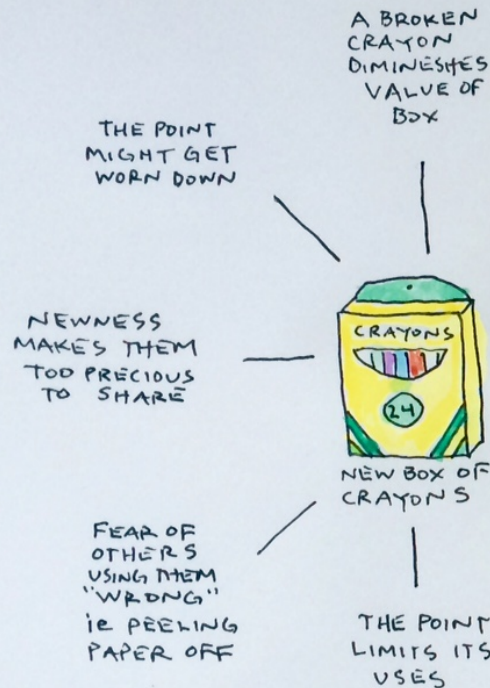 A BROKEN
CRAYON
DIMINESHES
VALUE OF
BOX
THE POINT
MIGHT GET
WORN DOWN
NEWNESS
MAKES THEM
TOO PRECIOUS
TO SHARE
CRAYONS
24
NEW BOX OF
CRAYONS
FEAR OF
OTHERS
USING THEM
"WRONG"
ie PEELING
PAPER OFF
THE POINT
LIMITS ITS
USES